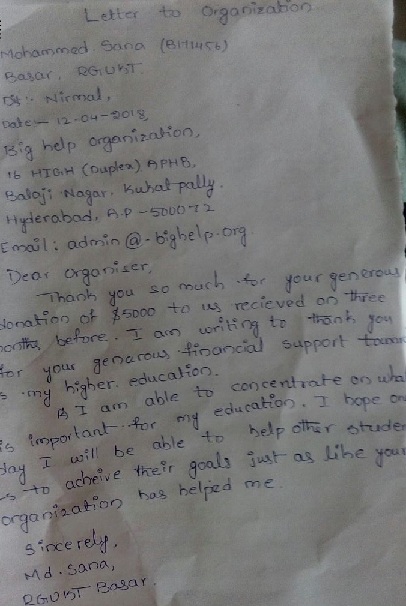 Letter to Organization
Mohammed Sana (B171456)
Basar, RGUKT.
Dt:- Nirmal,
Date:- 12-04-2018,
Big help organization,
16 HIGH (Duplex) APHB,
Balaji Nagar. Kukat pally.
Hyderabad, A.P - 500072
Email: admin@-bighelp.org.
Dear organiser,
Thank you so much for your generous
donation of $5000 to us recieved on three
months before. I am writing to thank you
for your genarous financial support
my higher education.
I am able to concentrate on
is important for my education. I hope
day I will be able to help other
to acheive their goals just as like your
organization has helped me.
Sincerely,
Md. Sana,
RGUKT Basar.